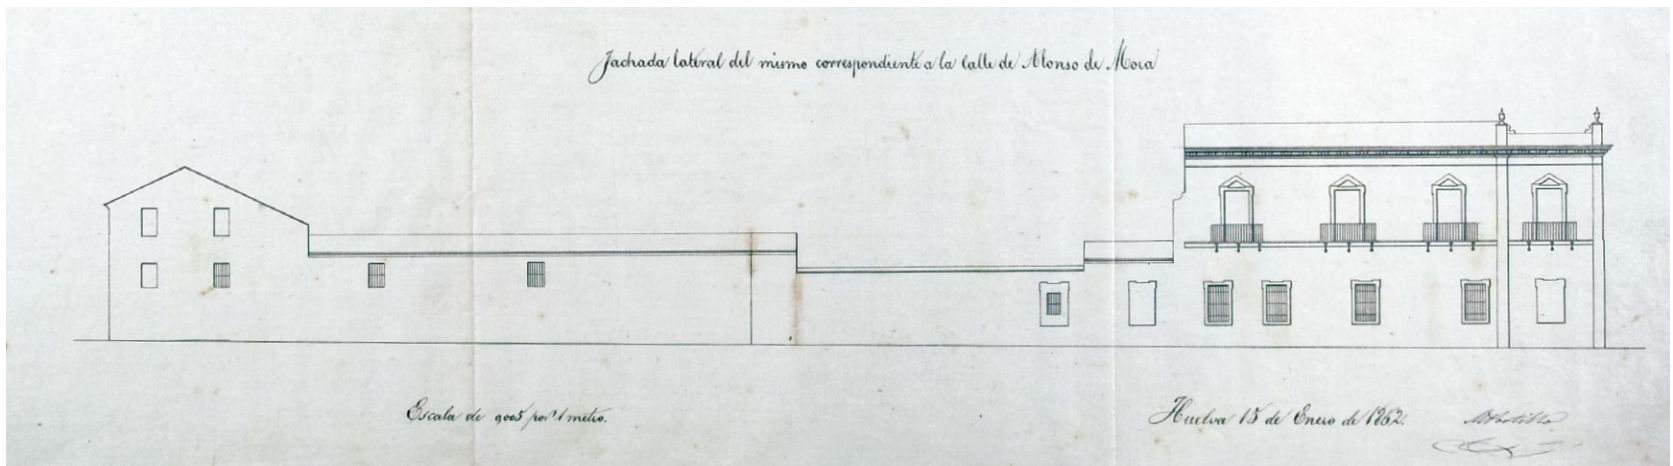 Fachada lateral del mismo correspondiente a la Calle de Alonso de Mora
Escala de 0,005 por 1 metro.
Huelva 15 de Enero de 1862.